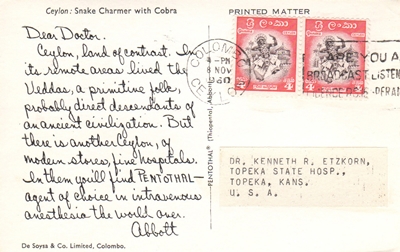 Ceylon: Snake Charmer with Cobra
PRINTED MATTER
Dear Doctor.
Ceylon, land of contrast. In
its remote areas lived the
Veddas, a primitive folk,
probably direct descendants of
an ancient civilization. But
there is another Ceylon, of
modern stores, fine hospitals.
In them you'll find PENTOTHAL—
agent of choice in intravenous
anesthesia the world over.
Abbott
De Soysa & Co. Limited, Colombo.
PENTOTHAL® (Thiopental, Abbott)
COLOMBO
4 - PM
8 NOV
1960
CEYLON
ARE YOU A
BROADCAST LISTENER
LICENCE
ශ්‍රී ලංකා
ශ්‍රී ලංකා
DR. KENNETH R. ETZKORN,
TOPEKA STATE HOSP.,
TOPEKA, KANS.
U. S. A.